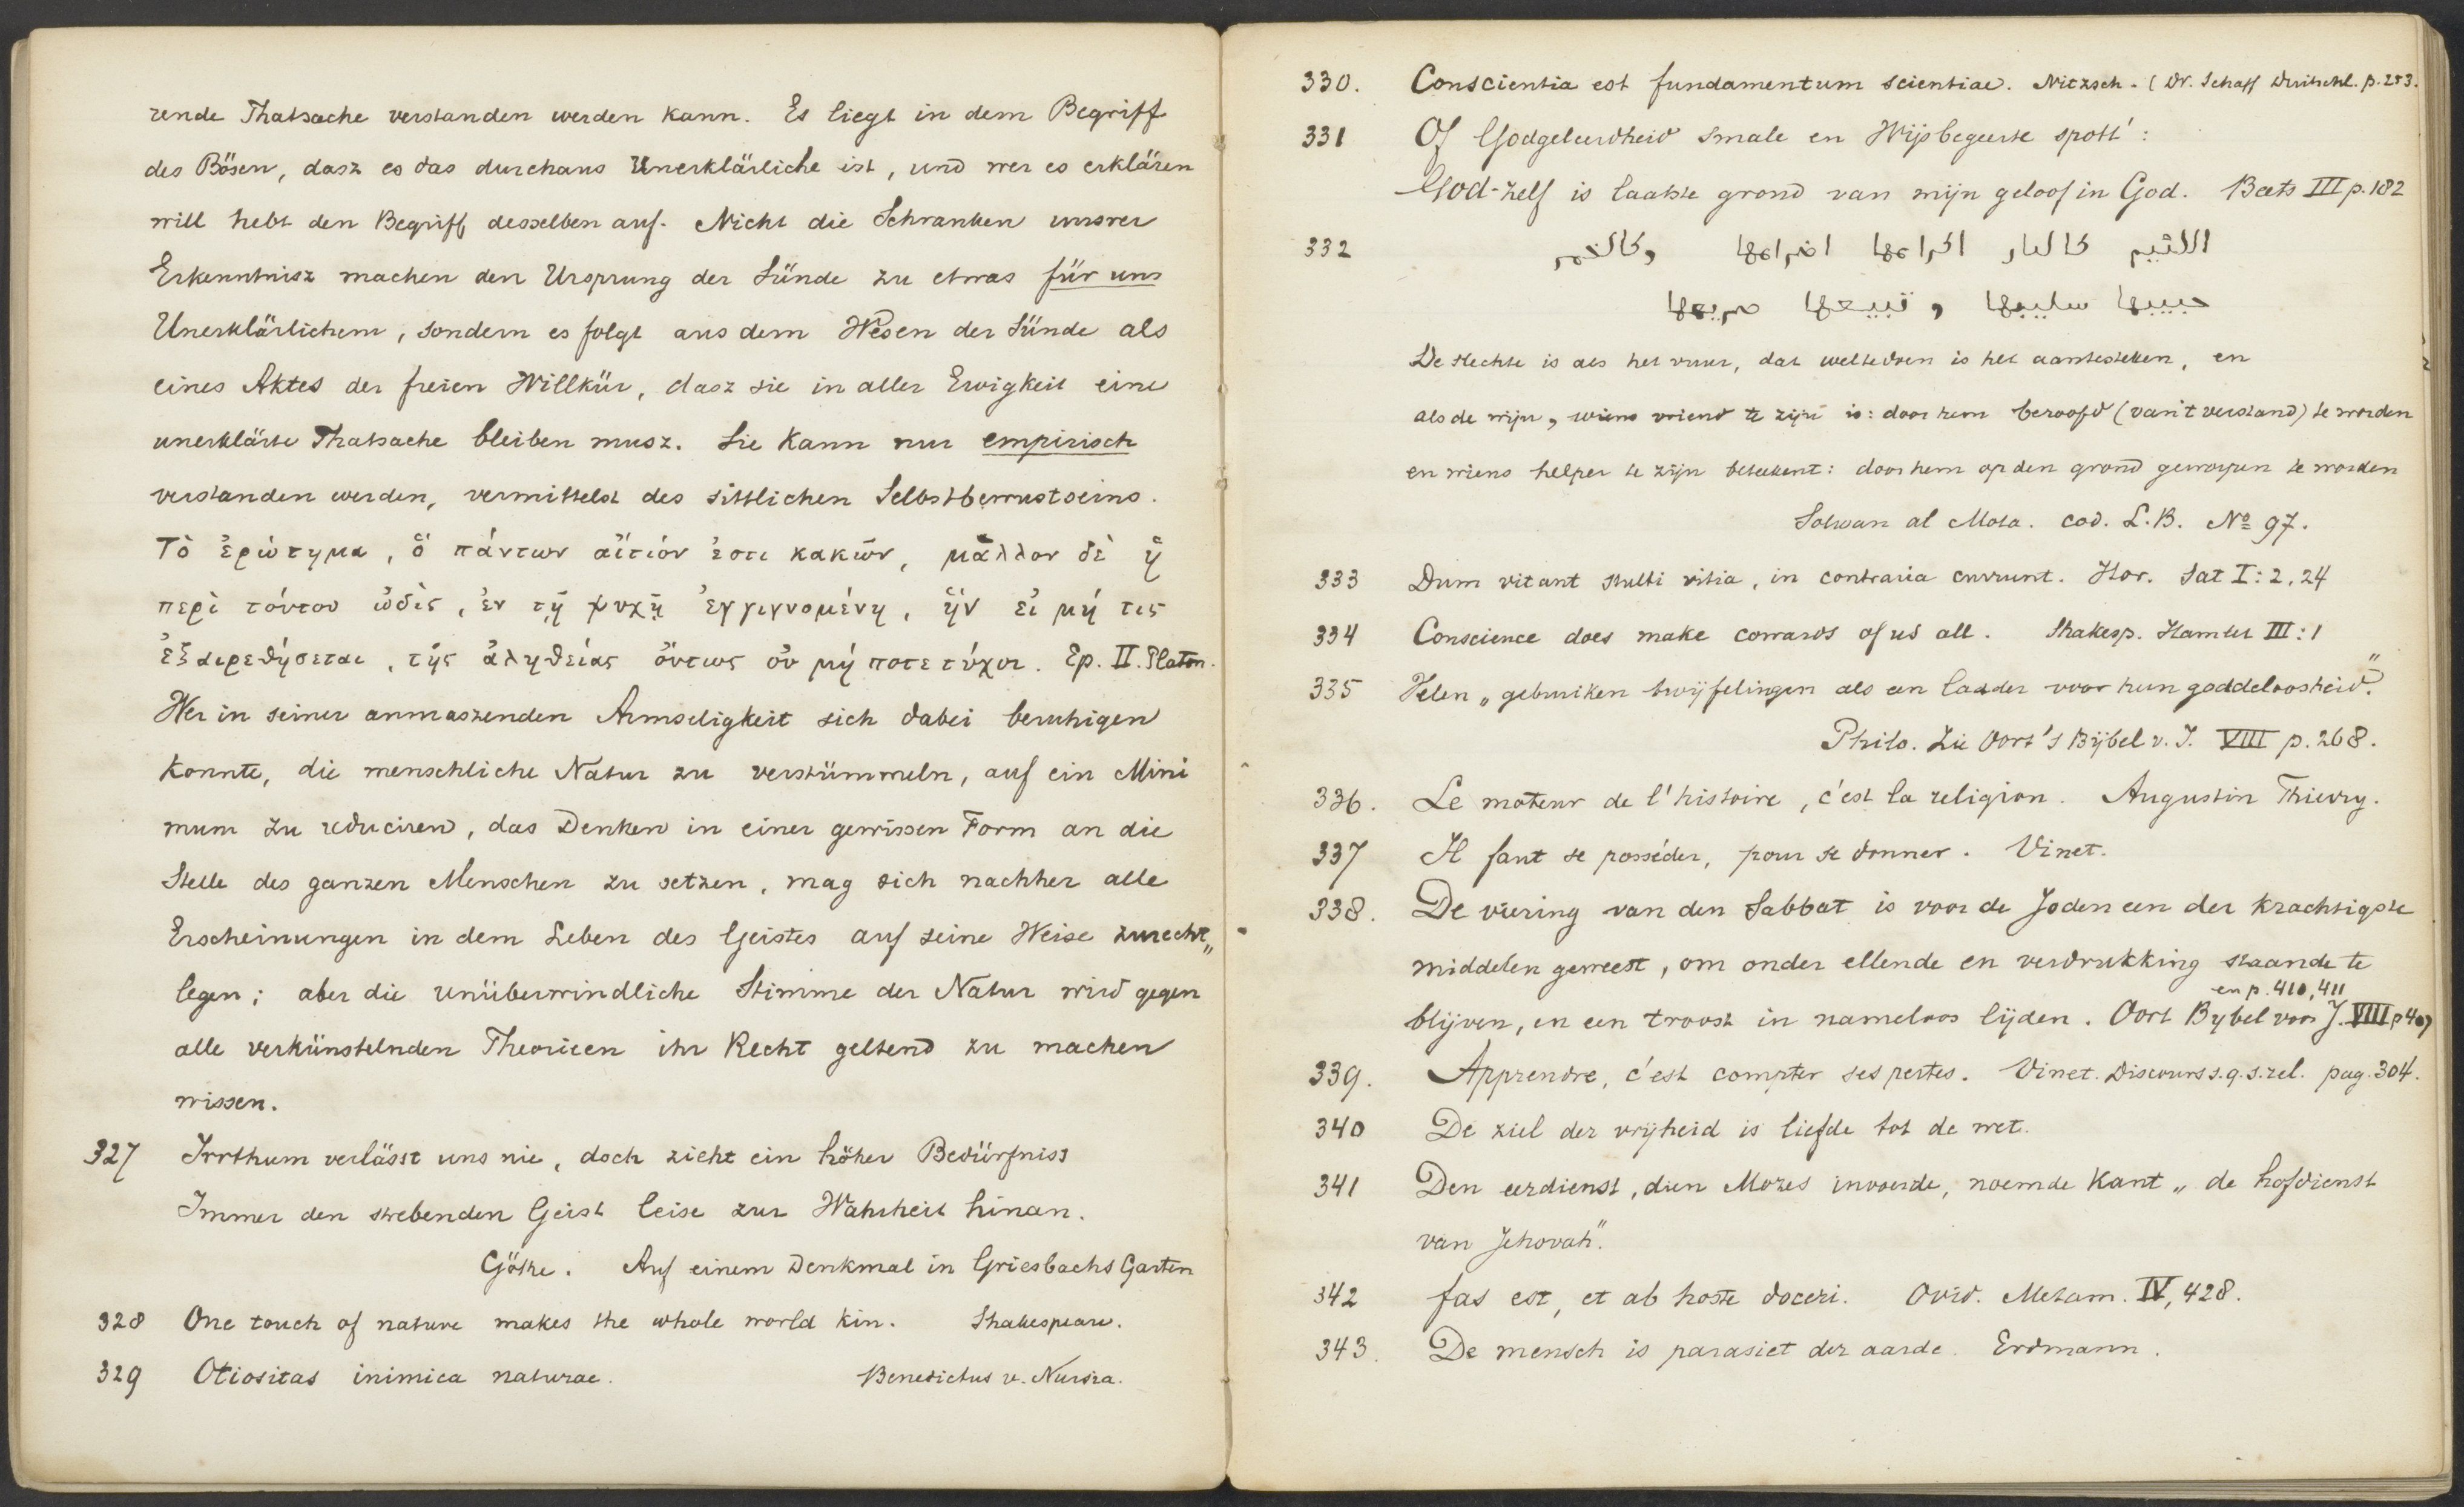 rende Thatsache verstanden werden kann. Es liegt in dem Begriff
des Bösen, dasz es das durchaus Unerklärliche ist, und wer es erklären
will hebt den Begriff desselben auf. Nicht die Schranken unsrer
Erkenntnisz machen den Ursprung der Sünde zu etwas für uns
Unerklärlichem, sondern es folgt aus dem Wesen der Sünde als
eines Aktes der freien Willkür, dasz sie in aller Ewigkeit eine
unerklärte Thatsache bleiben musz. Sie kann nur empirisch
verstanden werden, vermittelst des sittlichen Selbstbewustseins.
Τὸ ἐρώτημα, ὃ πάντων αἴτιόν ἐστι κακῶν, μᾶλλον δὲ ἡ
περὶ τούτου ὠδὶς, ἐν τῇ ψυχῇ ἐγγιγνομένη, ἣν εἰ μή τις
ἐξαιρεθήσεται, τῆς ἀληθείας ὄντως οὐ μή ποτε τύχοι. Ep. II. Platon.
Wer in seiner anmaszenden Armseligkeit sich dabei beruhigen
konnte, die menschliche Natur zu verstümmeln, auf ein Mini
mum zu reduciren, das Denken in einer gewissen Form an die
Stelle des ganzen Menschen zu setzen, mag sich nachher alle
Erscheinungen in dem Leben des Geistes auf seine Weise zurecht„
legen; aber die unüberwindliche Stimme der Natur wird gegen
alle verkünstelnden Theorieen ihr Recht geltend zu machen
wissen.
327 Irrthum verlässt uns nie, doch zieht ein höher Bedürfniss
Immer den strebenden Geist leise zur Wahrheit hinan.
Göthe. Auf einem Denkmal in Griesbachs Garten
328 One touch of nature makes the whole world kin. Shakespeare.
329 Otiositas inimica naturae. Benedictus v. Nursia.
330. Conscientia est fundamentum scientiae. Nitzsch. (Dr. Schaff p. 253.
331 Of Godgeleerdheid smale en Wijsbegeerte spott':
God-zelf is laatste grond van mijn geloof in God. Beets III p. 182
332 اللئيم كالنار اكرامها اضرامها وكالخمر
حبيبها سليبها و تبيعها صريعها
De slechte is als het vuur, dat weltedoen is het aantesteken, en
als de wijn, wiens vriend te zijn is: door hem beroofd (van 't verstand) te worden
en wiens helper te zijn beteekent: door hem op den grond geworpen te worden
Solwan al Mota. cod. L.B. No 97.
333 Dum vitant stulti vitia, in contraria currunt. Hor. Sat I: 2, 24
334 Conscience does make cowards of us all. Shakesp. Hamlet III: 1
335 Velen „gebruiken twijfelingen als een ladder voor hun goddeloosheid."
Philo. Zie Oort's Bijbel v. J. VIII p. 268.
336. Le moteur de l'histoire, c'est la religion. Augustin Thierry.
337 Il faut se posséder, pour se donner. Vinet.
338. De viering van den Sabbat is voor de Joden een der krachtigste
middelen geweest, om onder ellende en verdrukking staande te
en p. 410, 411
blijven, en een troost in nameloos lijden. Oort Bybel voor J. VIII p 407
339. Apprendre, c'est compter ses pertes. Vinet. Discours s. q. s. rel. pag. 304.
340 De ziel der vrijheid is liefde tot de wet.
341 Den eerdienst, dien Mozes invoerde, noemde Kant „de hofdienst
van Jehovah".
342 fas est, et ab hoste doceri. Ovid. Metam. IV, 428.
343. De mensch is parasiet der aarde. Erdmann.